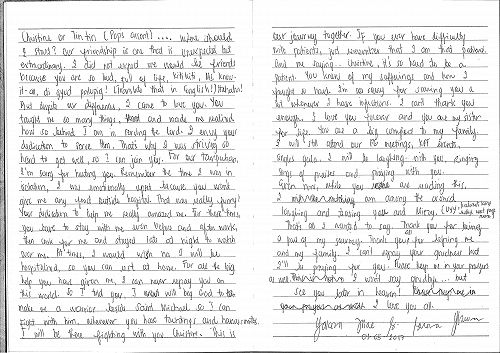 Christine or Tintin (Pops accent) .... where should
I start? Our friendship is one that is unexpected but
extraordinary. I did not expect we would be friends
because you are so loud, full of life, kitikiti, Ms. know-
it-all, di gyud palupig! (Translate that in English!) Hahaha!
And despite our differences, I came to love you. You
taught me so many things, and made me realized
how so behind I am in serving the Lord. I envy your
dedication to serve Him. That's why I was striving so
hard to get well, so I can join you.
I'm sorry for hurting you. Remember the time I was in
isolation, I was emotionally upset because you
give me any food outside hospital. That was really funny!
Your dedication to help me really amazed me. For three times,
you have to stay with me and after work,
then care for me and stayed late at night to watch
over me. At times, I would wish no I will be
hospitalized, so you can rest at home. For all the big
help you have given me, I can never repay you on
this world. So I told you, I will beg God to
make me a warrior beside Saint Michael so I can
fight with him. Whenever you have tauntings and
I will be there fighting with you Christine. This is
our journey together. If you ever have difficulty
with patients, just remember that I am that patient
and me saying - Christine, it's so hard to be a
patient. You knew of my sufferings and how I
fought so hard. I'm so sorry for
bit whenever I have infections. I can't thank you
enough. I love you forever and you are my sister
for life. You are a big comfort to my family.
I will still attend our meetings, events,
singles gala. I will be laughing with you, singing
songs of praises and praying with you.
Even now, while you are reading this,
I am around
laughing and teasing you and Mercy.
That's all I want to say. Thank you for being
a part of my journey. Thank you for helping me
and my family. I can't repay your goodness but
I'll be praying for you. Please keep us in your prayers
as well. I wont say goodbye... but
see you later in heaven!
I love you all.
2017